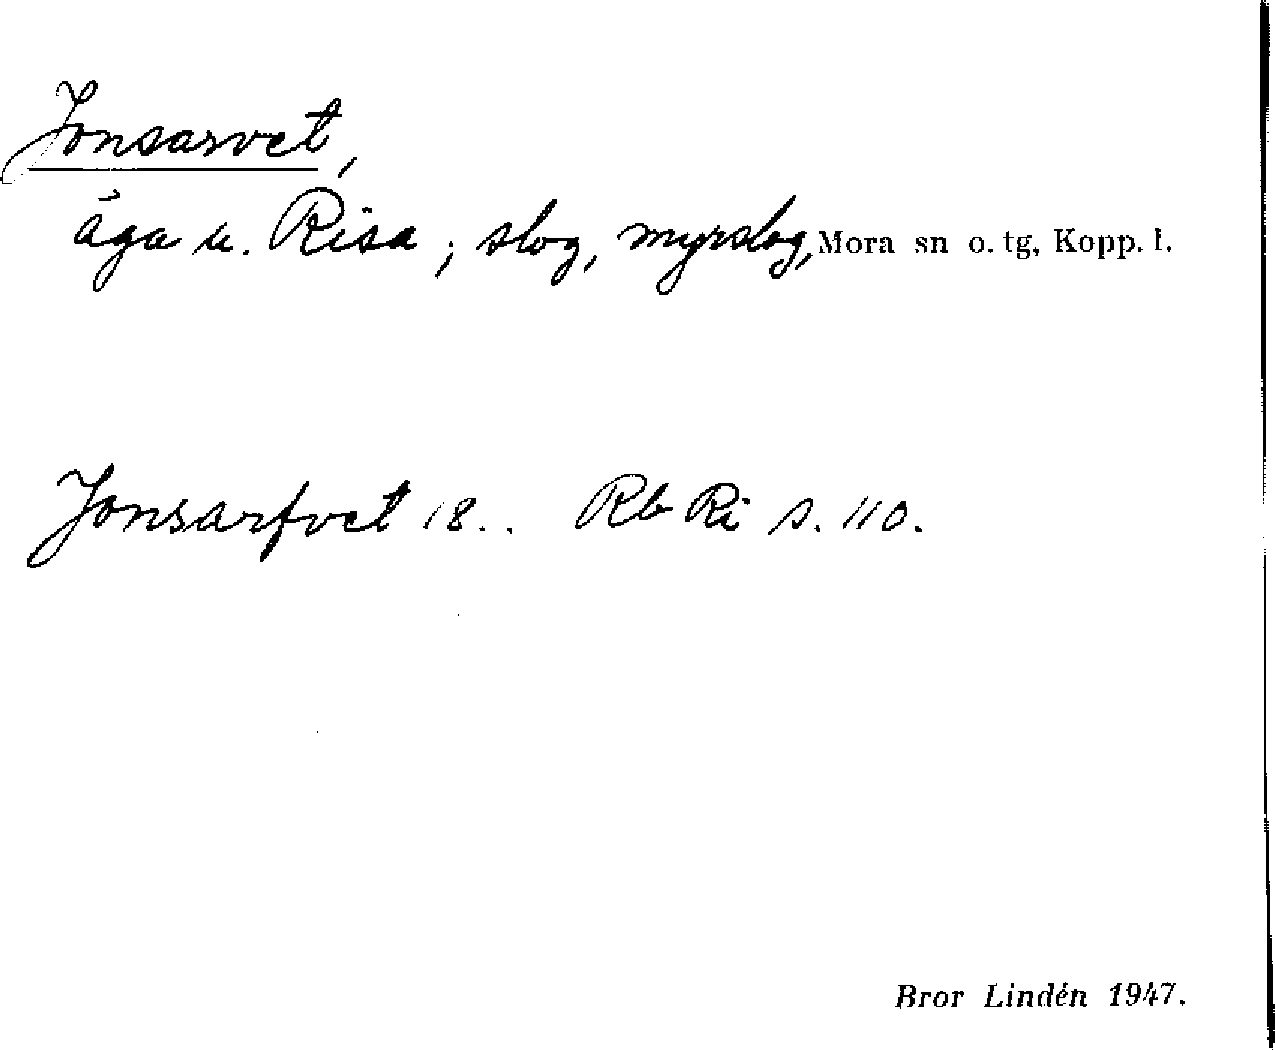 Jonsarvet,
äga u. Risa; slog, myrslog, Mora sn o. tg, Kopp. l.
Jonsarfvet 18.. Rb Ri s. 110.
Bror Lindén 1947.